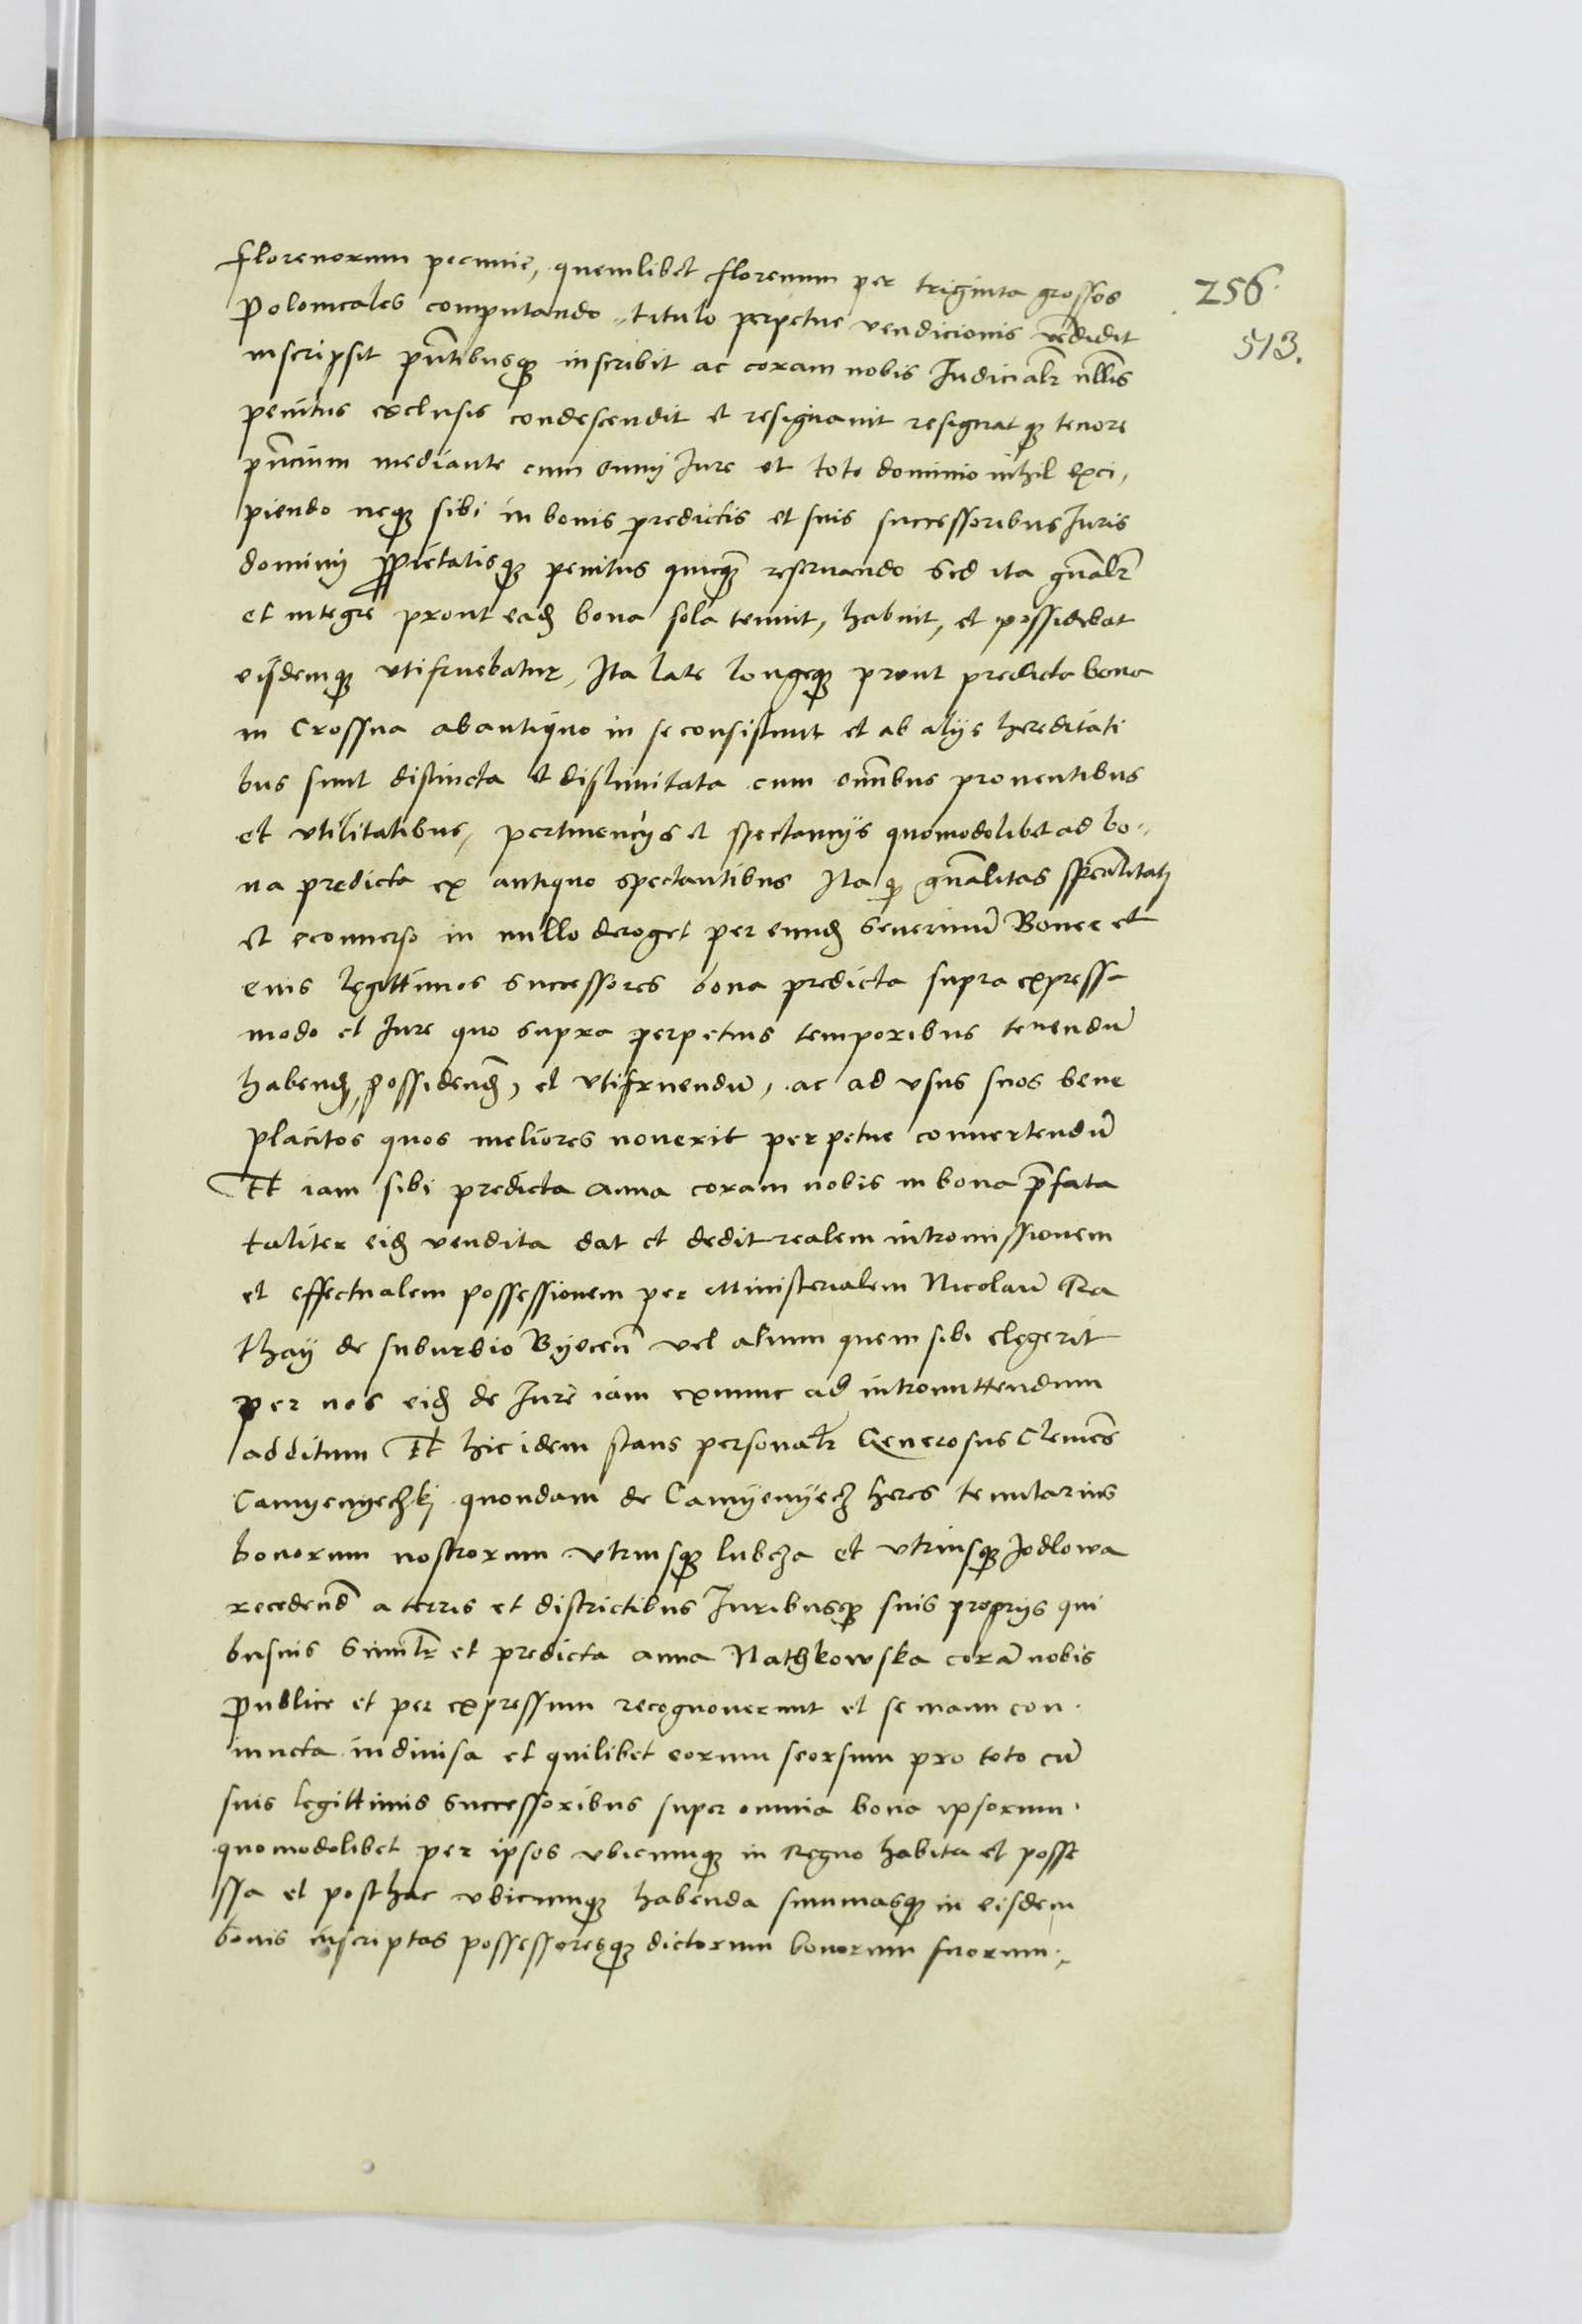 florenorum pecunie, quemlibet florenum per triginta grossos
256.
Polonicales computando, titulo perpetue vendicionis vēdidit
513.
inscripsit pñtibusq̃ inscribit ac coram nobis Judicialr̃ nllis
penitus exclusis condescendit et resignavit resignatq̃ tenore
pñcium mediante cum omni Jure et toto dominio nihil exci,
piendo neq̃ sibi in bonis predictis et suis successoribus Juris
dominij ꝓprietatisq̃ penitus quicq̃ reservando Sed ita gñalr̃
et integre prout eadꝫ bona sola tenuit, habuit, et possidebat
eisdemq̃ utifruebatur, Ita late longeq̃ prout predicta bona
in Crossna ab antiquo in se consistunt et ab alijs hereditati
bus sunt distincta et dislimitata cum omnibus proventibus
et utilitatibus, pertinencijs et spectancijs quomodolibet ad bo,,
na predicta ex antiquo spectantibus Ita q̃ gñalitas spēalitati
et econverso in nullo deroget per eundꝫ Severinū Boner et
eius legittimos successores bona predicta supra expressa
modo et Jure quo supra perpetuis temporibus tenendū
habendꝫ, possidendꝫ, et utifruendū, ac ad usus suos bene
placitos quos meliores noverit perpetue convertendū
Et iam sibi predicta Anna coram nobis in bona p̄fata
taliter eidꝫ vendita dat et dedit realem intromissionem
et effectualem possessionem per Ministerialem Nicolaū Ra
thaÿ de suburbio Byeceñ vel alium quem sibi elegerit
per nos eidꝫ de Jure iam exnunc ad intromittendum
additum Et hic idem stans personalr̃ Generosus Clemēs
Camyenyeczkj quondam de Camÿenÿecz heres tenutarius
bonorum nostrorum utriusq̃ lubcza et utriusq̃ Jodlowa
recedend̃ a terris et districtibus Juribusq̃ suis proprijs qui
busvis Similr̃ et predicta Anna Nathkowska corā nobis
publice et per expressum recognoverunt et se manu con
iuncta indivisa et quilibet eorum seorsum pro toto cū
suis legittimis Successoribus super omnia bona ipsorum
quomodolibet per ipsos ubicumq̃ in Regno habita et posse
ssa et posthac ubicumq̃ habenda summasq̃ in eisdem
bonis inscriptas possessoresq̃ dictorum bonorum suorum